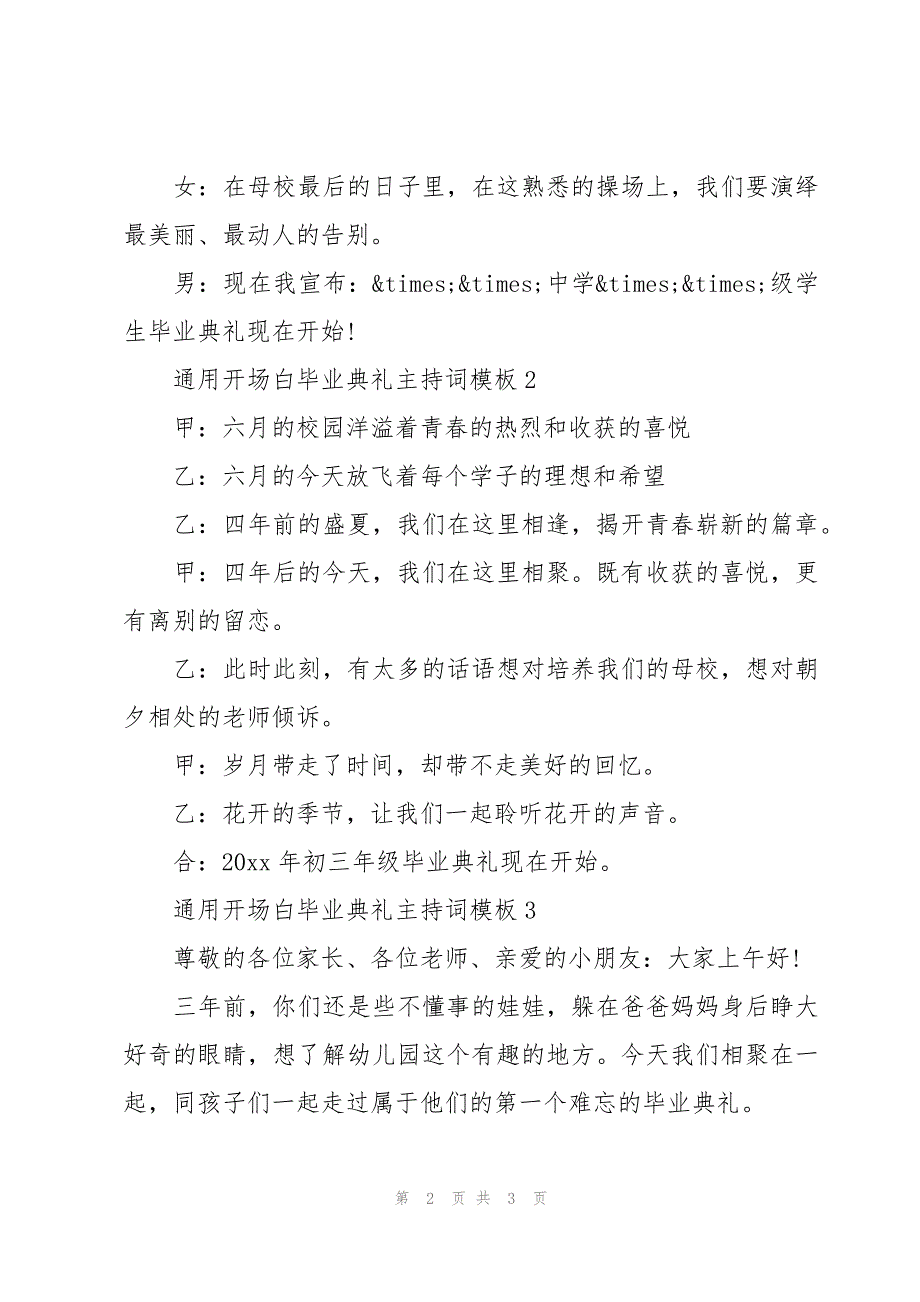 女：在母校最后的日子里，在这熟悉的操场上，我们要演绎
最美丽、最动人的告别。
男：现在我宣布：&times;&times;中学&times;&times;级学
生毕业典礼现在开始!
通用开场白毕业典礼主持词模板2
甲：六月的校园洋溢着青春的热烈和收获的喜悦
乙：六月的今天放飞着每个学子的理想和希望
乙：四年前的盛夏，我们在这里相逢，揭开青春崭新的篇章。
甲：四年后的今天，我们在这里相聚。既有收获的喜悦，更
有离别的留恋。
乙：此时此刻，有太多的话语想对培养我们的母校，想对朝
夕相处的老师倾诉。
甲：岁月带走了时间，却带不走美好的回忆。
乙：花开的季节，让我们一起聆听花开的声音。
合：20xx年初三年级毕业典礼现在开始。
通用开场白毕业典礼主持词模板3
尊敬的各位家长、各位老师、亲爱的小朋友：大家上午好!
三年前，你们还是些不懂事的娃娃，躲在爸爸妈妈身后睁大
好奇的眼睛，想了解幼儿园这个有趣的地方。今天我们相聚在一
起，同孩子们一起走过属于他们的第一个难忘的毕业典礼。
第 2 页 共 3 页